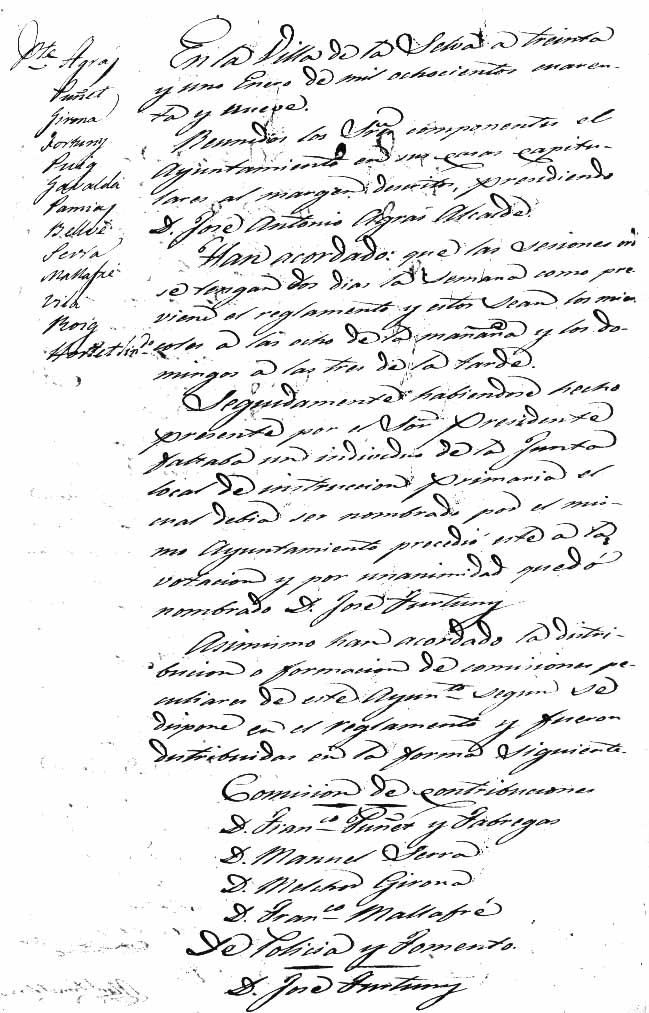 Pte. Agrás
Puñet
Girona
Fortuny
Puig
Gavaldá
Pamias
Bellvé
Serra
Mallafré
Vilá
Roig
Hortet
En la Villa de la Selva a treinta
y uno Enero de mil ochocientos cuaren-
ta y nueve.
Reunidos los Sres. componentes el
Ayuntamiento en sus casas capitu-
lares al margen descritos, presidiendo
D. José Antonio Agrás Alcalde.
Han acordado: que las sesiones
se tengan dos dias la semana como pre-
viene el reglamento y estos sean los mier-
coles a las ocho de la mañana y los do-
mingos a las tres de la tarde.
Seguidamente habiendose hecho
presente por el Sor. Presidente
faltaba un individuo de la Junta
local de instruccion primaria el
cual debia ser nombrado por el mis-
mo Ayuntamiento procedió este a la
votacion y por unanimidad quedó
nombrado D. José Furtuny
Asimismo han acordado la distri-
bucion o formacion de comisiones pe-
culiares de este Ayunto. segun se
dispone en el reglamento y fueron
distribuidas en la forma siguiente.
Comision de contribuciones
D. Franco. Puñet y Fabregas
D. Manuel Serra
D. Melchor Girona
D. Franco. Mallafré
De Policia y Fomento.
D. José Furtuny